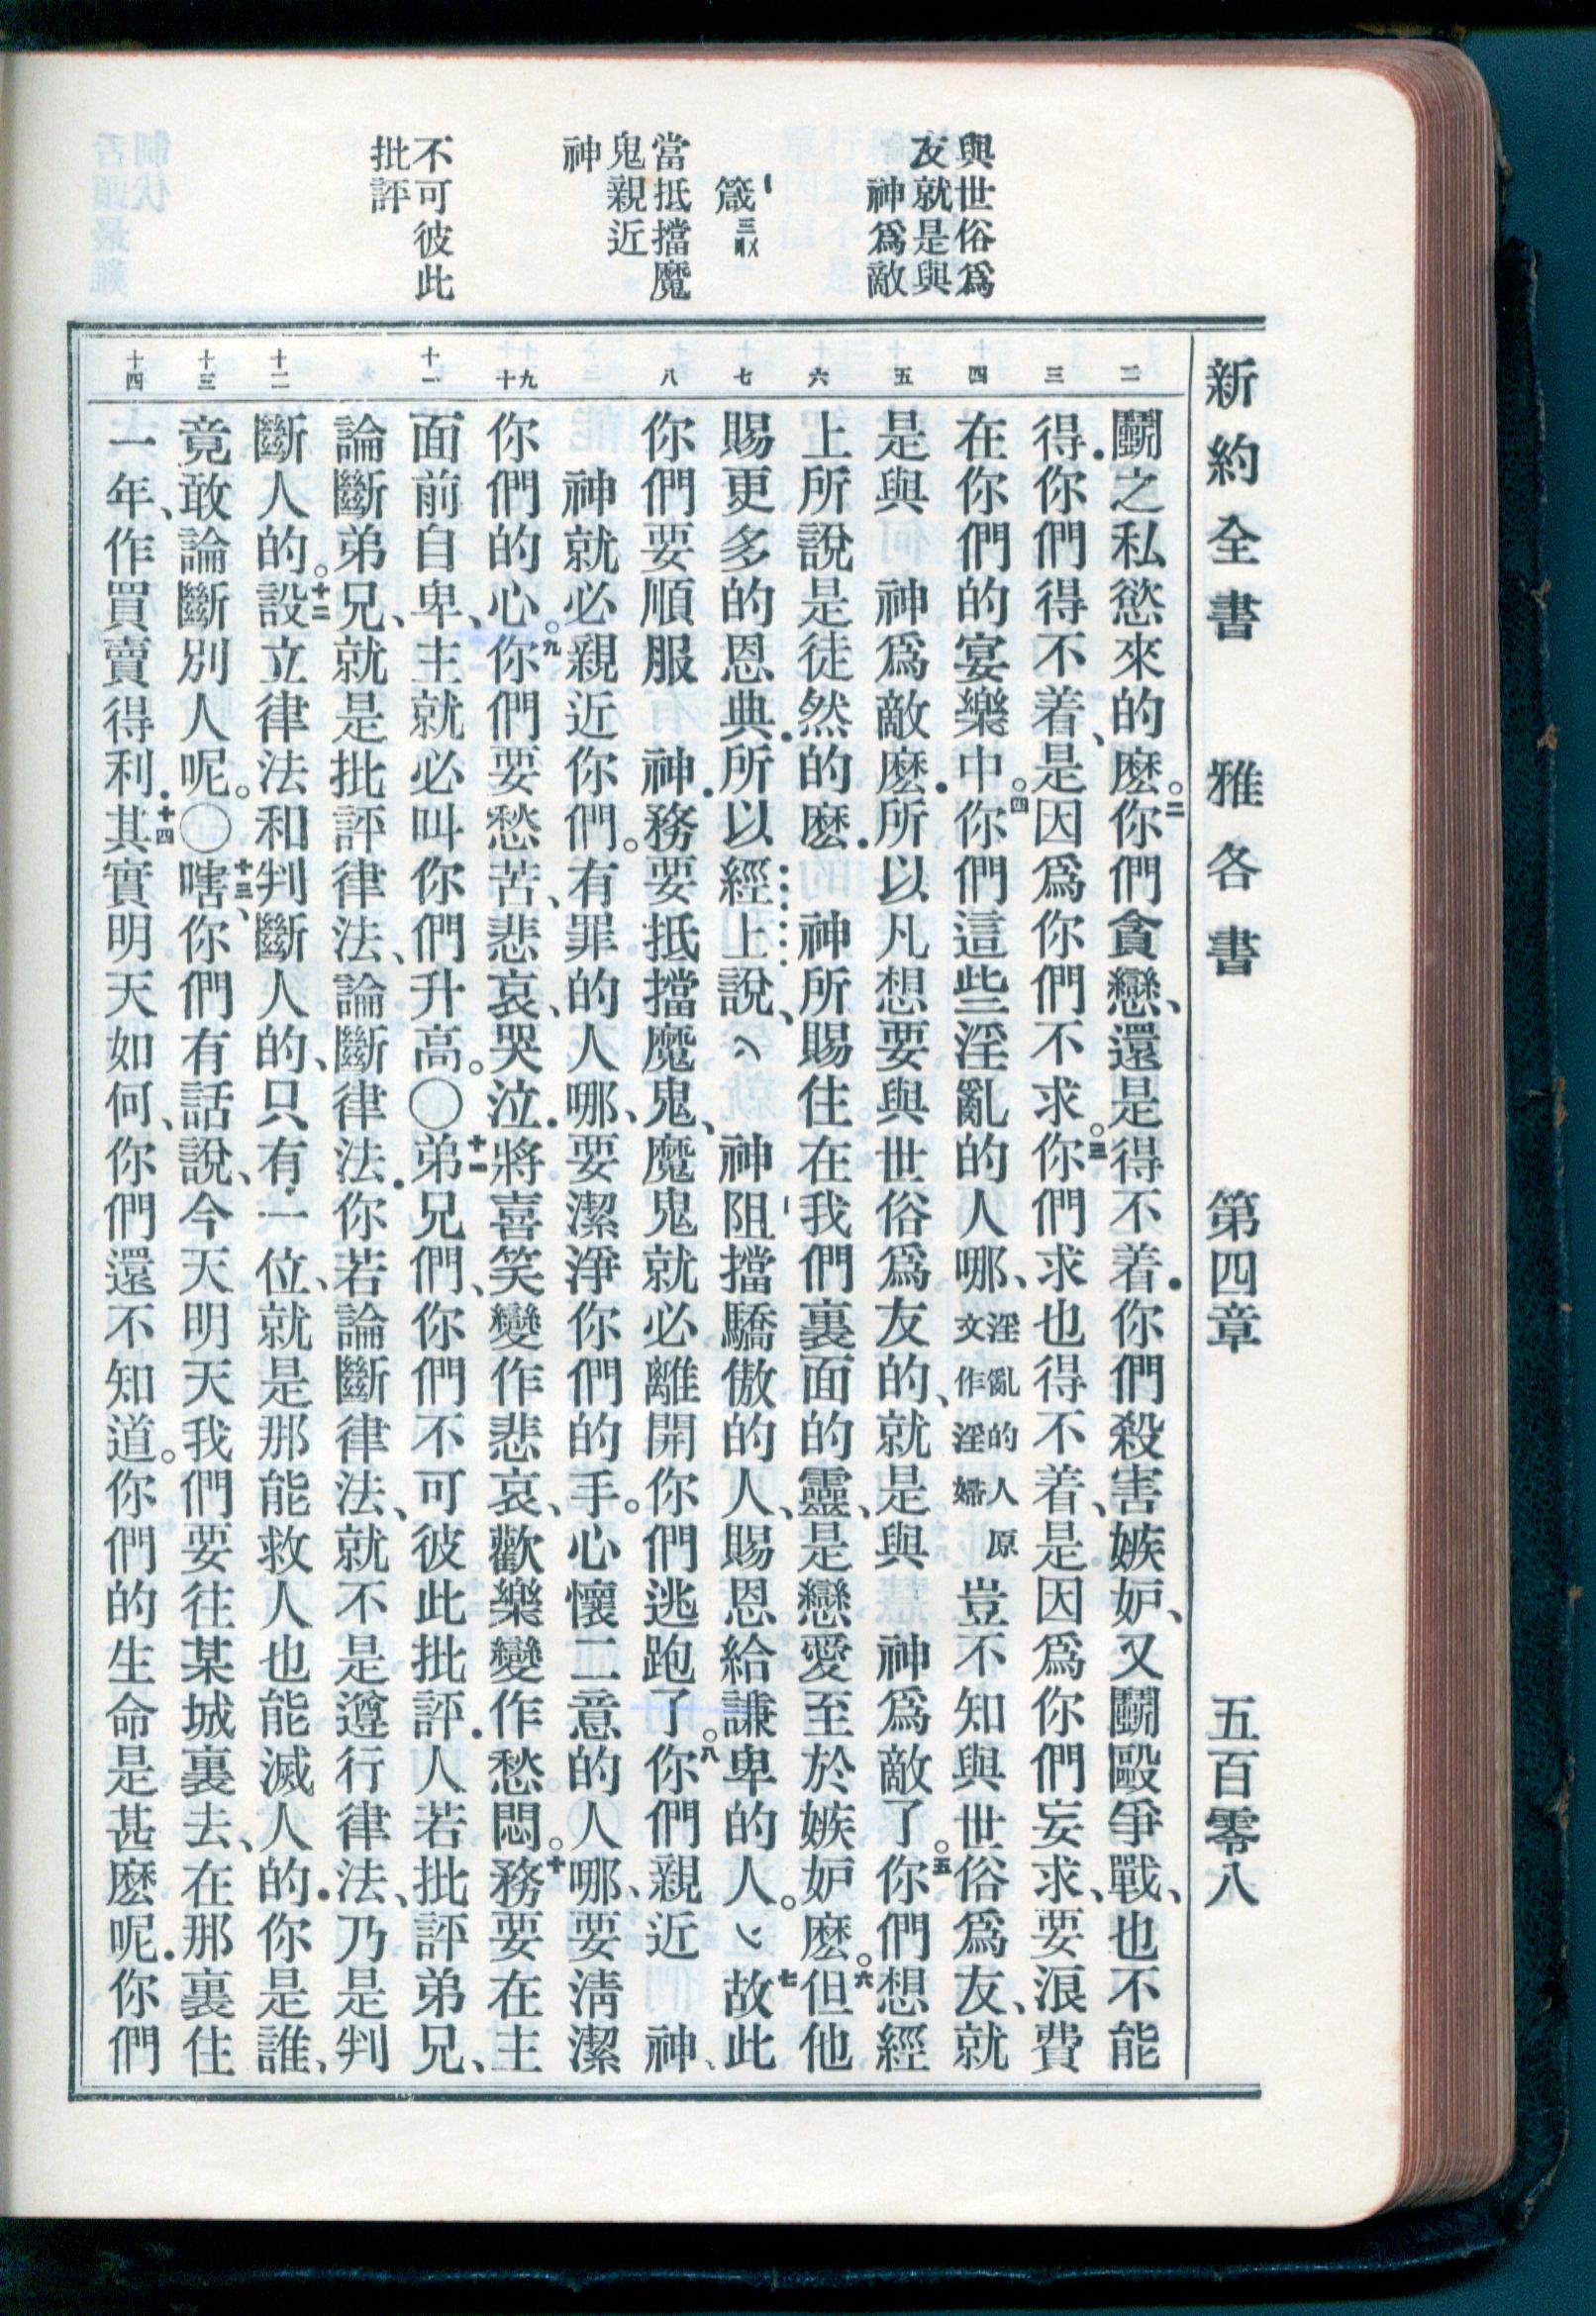 新約全書　雅各書　第四章　五百零八
與世俗爲
友就是與
神爲敵
箴三
當抵擋魔
鬼親近
神
不可彼此
批評
二
三
四
五
六
七
八
九
十
十一
十二
十三
十四
鬭之私慾來的麽。二你們貪戀、還是得不着．你們殺害嫉妒、又鬭毆爭戰、也不能
得．你們得不着、是因爲你們不求。三你們求也得不着、是因爲你們妄求、要浪費
在你們的宴樂中。四你們這些淫亂的人哪、淫亂的人原文作淫婦豈不知與世俗爲友、就
是與　神爲敵麽．所以凡想要與世俗爲友的、就是與　神爲敵了。五你們想經
上所說是徒然的麽．　神所賜住在我們裏面的靈、是戀愛至於嫉妒麽。六但他
賜更多的恩典．所以經上說、　神阻擋驕傲的人、賜恩給謙卑的人。七故此
你們要順服　神．務要抵擋魔鬼、魔鬼就必離開你們逃跑了。八你們親近　神、
　神就必親近你們。有罪的人哪、要潔淨你們的手。心懷二意的人哪、要清潔
你們的心。九你們要愁苦、悲哀、哭泣．將喜笑變作悲哀、歡樂變作愁悶。十務要在主
面前自卑、主就必叫你們升高。〇十一弟兄們、你們不可彼此批評．人若批評弟兄、
論斷弟兄、就是批評律法、論斷律法．你若論斷律法、就不是遵行律法、乃是判
斷人的。十二設立律法和判斷人的、只有一位、就是那能救人也能滅人的．你是誰、
竟敢論斷別人呢。〇十三嗐、你們有話說、今天明天我們要往某城裏去、在那裏住
一年、作買賣得利．十四其實明天如何、你們還不知道。你們的生命是甚麽呢．你們